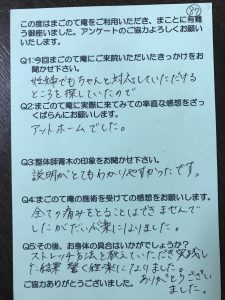 87
この度はまごのて庵をご利用いただき、まことに有難
う御座いました。アンケートのご協力よろしくお願い
いたします。
Q1:今回まごのて庵にご来院いただいたきっかけをお
聞かせ下さい。
妊婦でもちゃんと対応していただける
ところを探していたので
Q2:まごのて庵に実際に来てみての率直な感想をざっ
くばらんにお願いします。
アットホームでした。
Q3:整体師青木の印象をお聞かせ下さい。
説明がとてもわかりやすかったです。
Q4:まごのて庵の施術を受けての感想をお願いします。
全ての痛みをとることはできませんで
したがだいぶ楽になりました。
Q5:その後、お身体の具合はいかがでしょうか?
ストレッチ方法を教えていただき実践し
た結果驚く程楽になりました。
ありがとうござい
ご協力ありがとうございました。
ました。